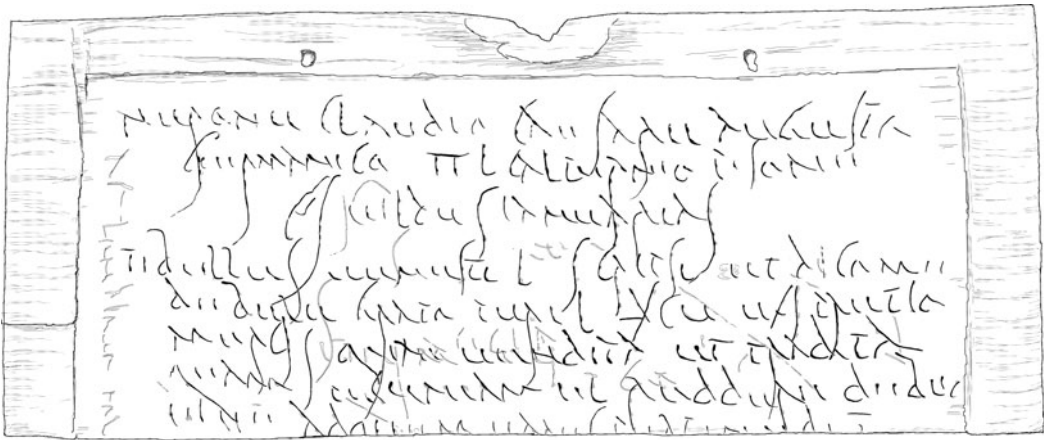 Nerone Claudio Caesare Augusto
Germanico II L Calpurnio Pisone
cos VI Idus Ianuarias
Tibullus Venusti l scripsi et dico me
debere Grato Spuri l X CV ex pretio
mercis quae vendita et tradita
quam pecuniam ei reddere debeo
eive ad quem ea res pertinebit